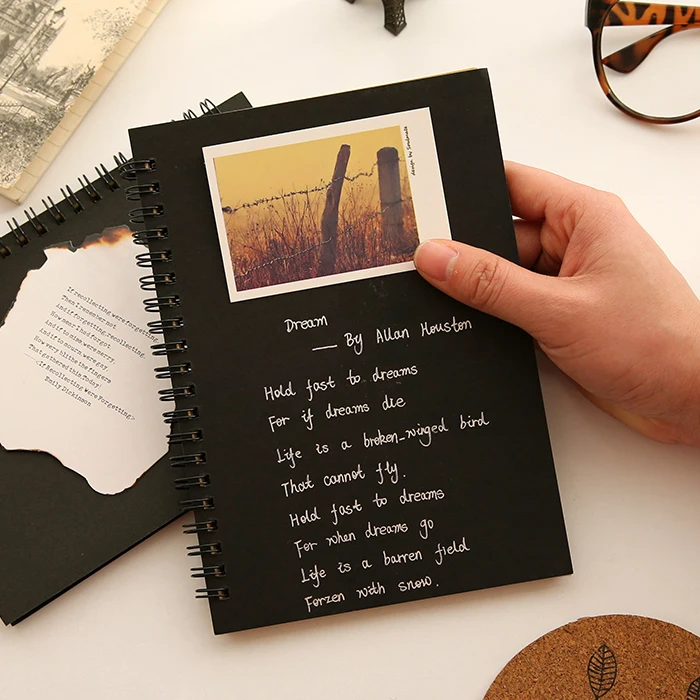 design by Sendmate
Dream
— By Allan Houston
Hold fast to dreams
For if dreams die
Life is a broken-winged bird
That cannot fly.
Hold fast to dreams
For when dreams go
Life is a barren field
Forzen with snow.
If recollecting were forgetting,
Then I remember not.
And if forgetting, recollecting,
How near I had forgot.
And if to miss were merry,
And if to mourn were gay,
How very blithe the fingers
That gathered this, Today!
<If Recollecting Were Forgetting>
Emily Dickinson